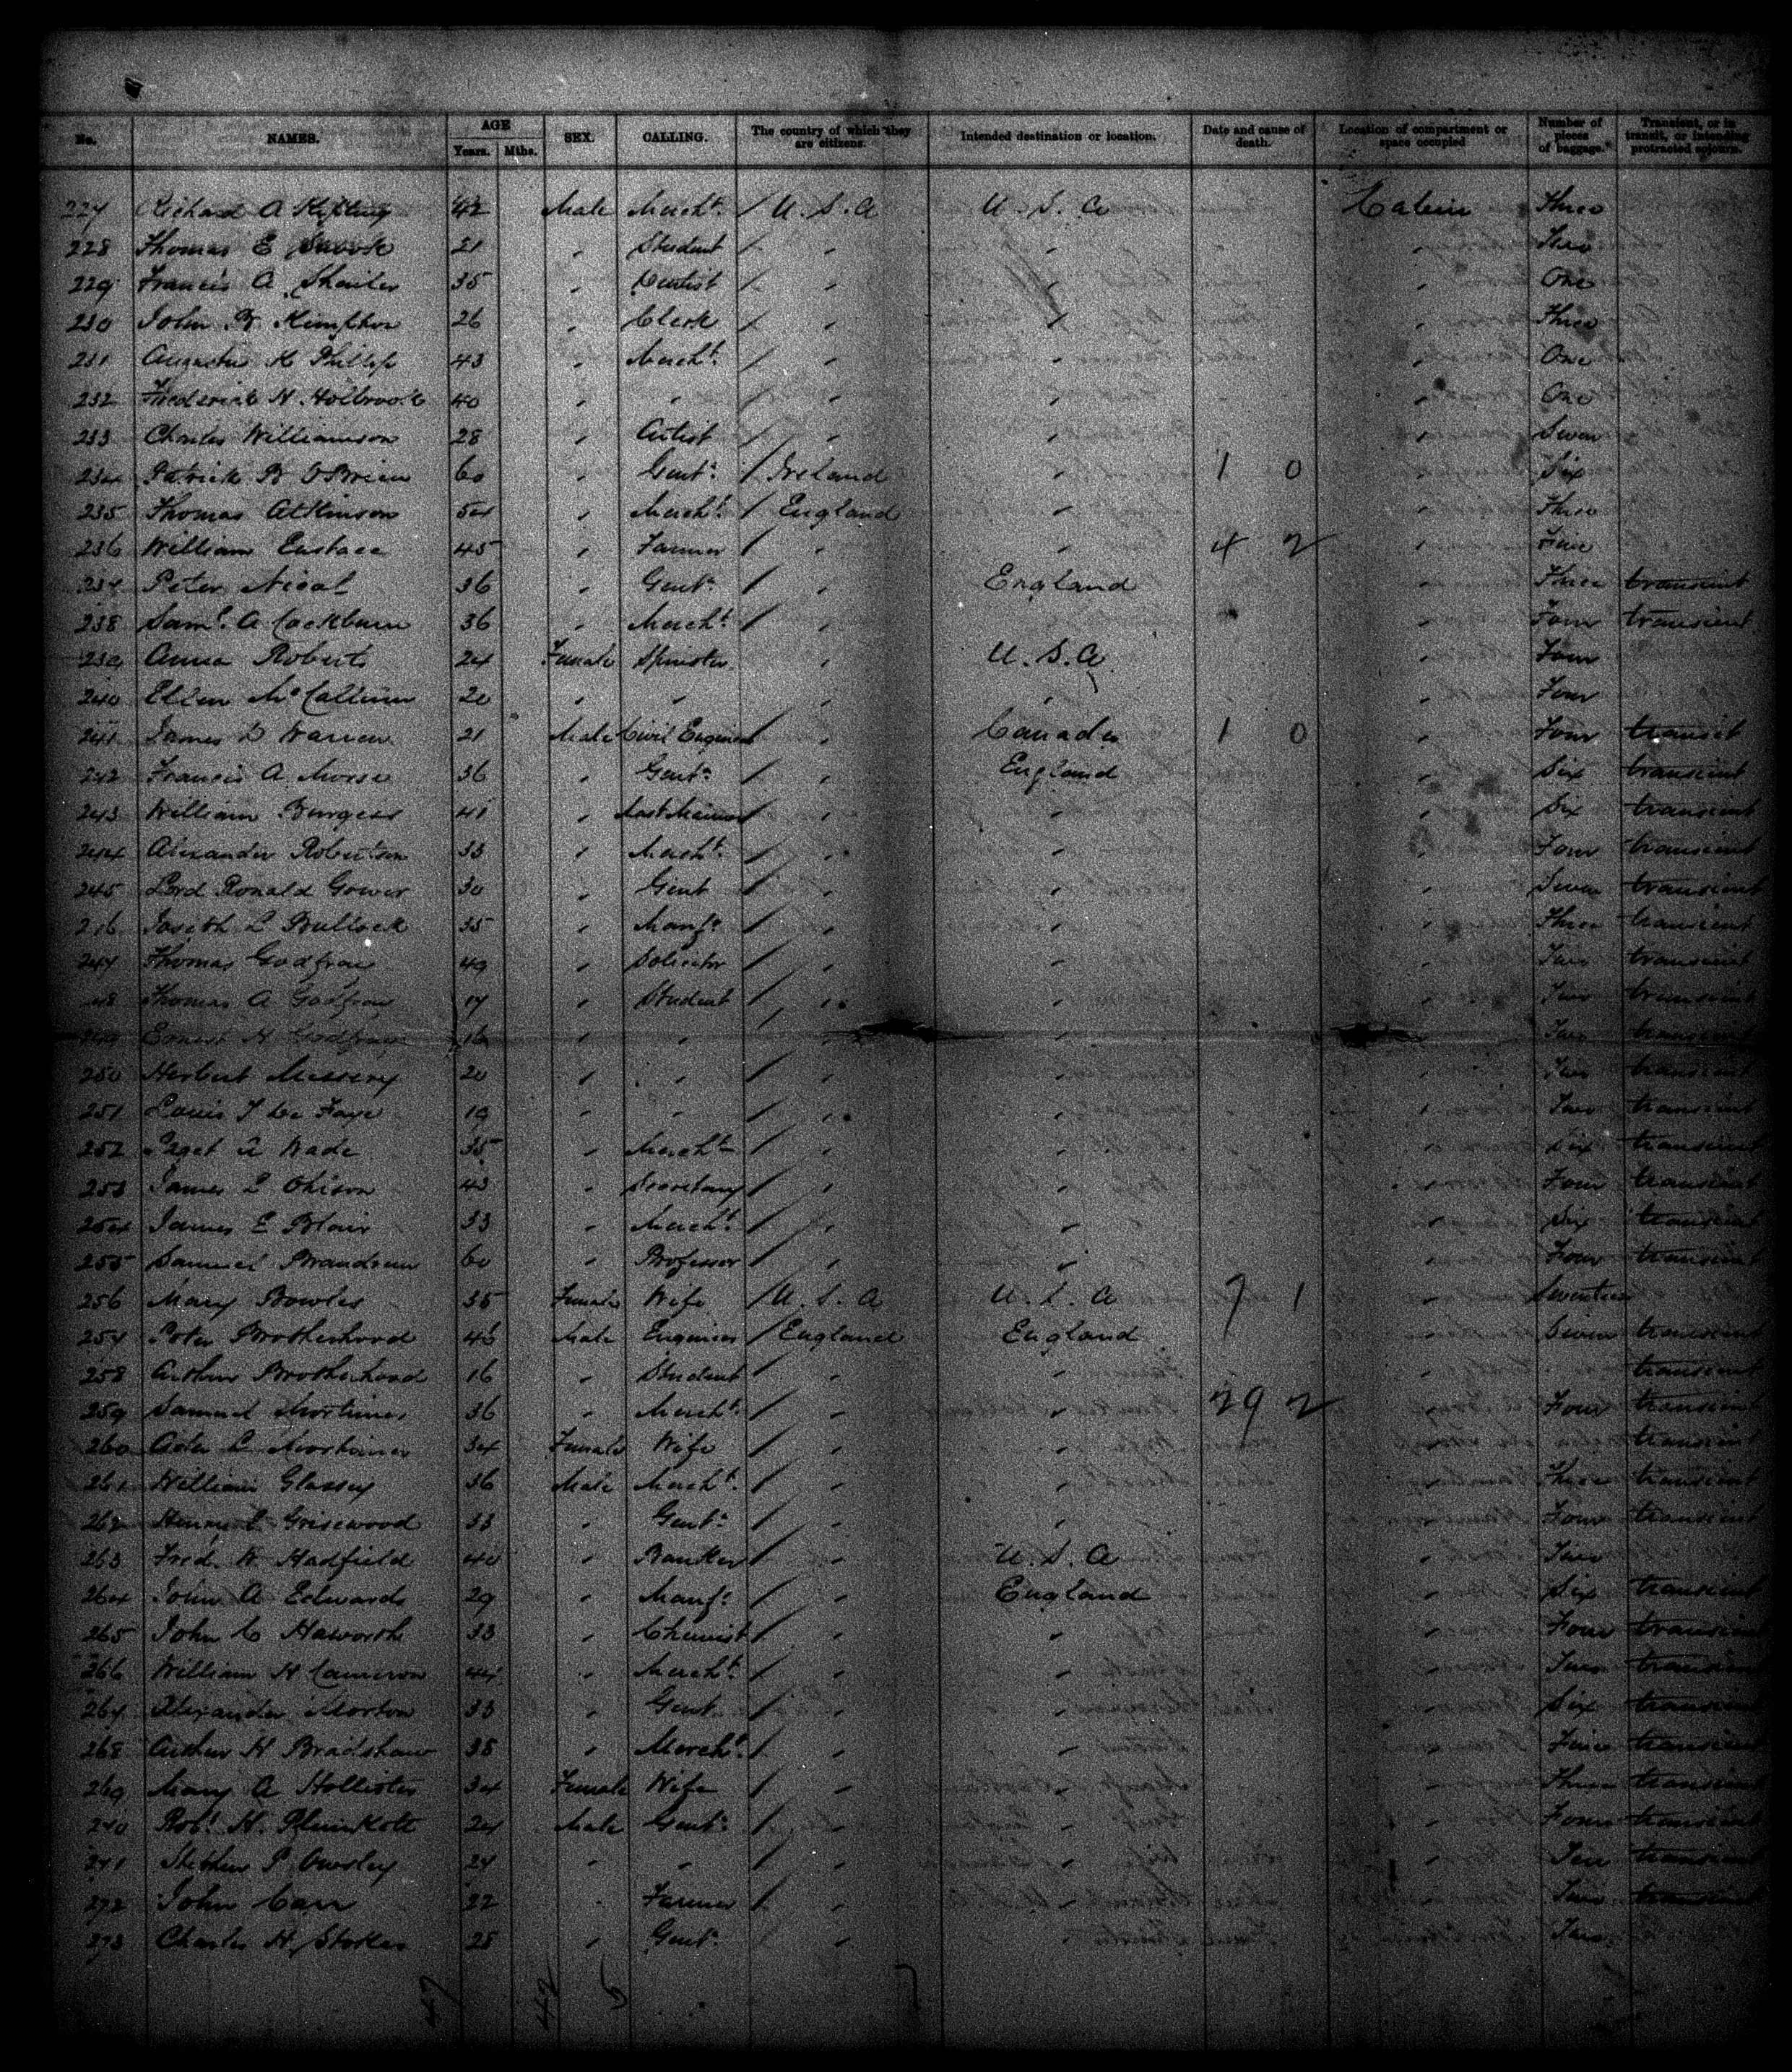 No. NAMES. AGE Years. Mths. SEX. CALLING. The country of which they are citizens. Intended destination or location. Date and cause of death. Location of compartment or space occupied Number of pieces of baggage. Transient, or in transit, or intending protracted sojourn.
227 Richard A Male Mercht. / U. S. A U. S. A Cabin Three
228 Thomas E 21 " Student / " " "
229 Francis A 35 " Dentist / " " " One
230 John B Kimpton 26 " Clerk / " " " Three
231 Augustus K Phillips 43 " Mercht. / " " " One
232 Frederick H Holbrook 40 " " / " " " One
233 Charles Williamson 28 " Artist / " " " Seven
234 Patrick B O'Brien 60 " Gent. / Ireland " 1 0 " Six
235 Thomas Atkinson 54 " Mercht. / England " " Three
236 William Eustace 45 " Farmer / " " 4 2 "
237 Peter Nicol 36 " Gent. / " England " Three transient
238 Saml. A Cockburn 36 " Mercht. / " " " Four transient
239 Anna Roberts 24 Female Spinster " U. S. A " Four
240 Ellen McCallum 20 " " " " " Four
241 James D Warren 21 Male Civil Engineer / " Canada 1 0 " Four transit
242 Francis A Morse 36 " Gent. / " England " Six transient
243 William Burgess 41 " Mast Mariner / " " " Six transient
244 Alexander Robertson 33 " Mercht. / " " " Four transient
245 Lord Ronald Gower 30 " Gent / " " " Seven transient
246 Joseph L Bullock 35 " Manfr. / " " " Three transient
247 Thomas Godfray 49 " Solicitor / " " " Two transient
248 Thomas A Godfray 17 " Student / " " " Two transient
249 Ernest H Godfray 16 " " / " " " Two transient
250 Herbert Messervy 20 " " / " " " Two transient
251 Louis 19 " " / " " " Two transient
252 Paget A Wade 35 " Mercht / " " " Six transient
253 James L Ohlson 43 " Secretary / " " " Four transient
254 James E Blair 33 " Mercht. / " " " Six transient
255 Samuel Brandram 60 " Professor / " " " Four transient
256 Mary Bowles 35 Female Wife / U. S. A U. S. A 7 1 " Seventeen
257 Peter Brotherhood 46 Male Engineer / England England " Seven transient
258 Arthur Brotherhood 16 " Student / " " " transient
259 Samuel Mortimer 36 " Mercht. / " " 29 2 " Four transient
260 Mortimer 34 Female Wife / " " " transient
261 William Glassey 36 Male Mercht. / " " " Three transient
262 Henry C Grisewood 33 " Gent. / " " " Four transient
263 Fred. W Hadfield 40 " Banker / " U. S. A " Two
264 John A Edwards 29 " Manfr. / " England " Six transient
265 John C Haworth 33 " Chemist / " " " Four transient
266 William H Cameron 44 " Mercht. / " " " Two transient
267 Alexander Morton 33 " Gent. / " " " Six transient
268 Arthur H Bradshaw 38 " Mercht. / " " " transient
269 Mary A Hollister 34 Female Wife / " " " Three transient
270 Robt. H. Plunkett 24 Male Gent. / " " " Four transient
271 Stephen P Owsley 24 " " / " " " Ten transient
272 John Carr 22 " Farmer / " " " Two transient
273 Charles H Stokes 25 " Gent. " " " Two
47 42 5